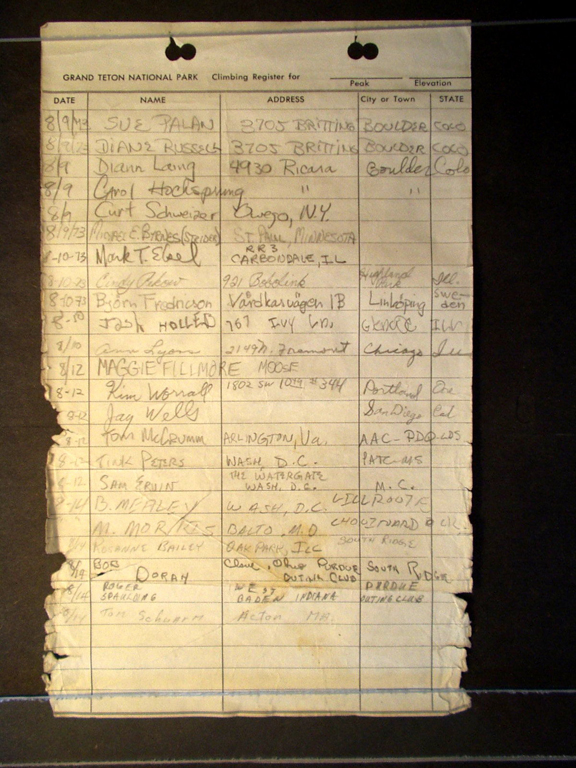 GRAND TETON NATIONAL PARK Climbing Register for
Peak Elevation
DATE NAME ADDRESS City or Town STATE
8/9/73 SUE PALAN 3705 BRITTING BOULDER COLO
8/9/73 DIANE RUSSELL 3705 BRITTING BOULDER COLO
8/9 Diann Laing 4930 Ricara Boulder Colo
8/9 Carol Hocksprung " "
8/9 Curt Schweizer Owego, N.Y.
8/9/73 MICHAEL E. BYRNES (STRIDER) ST. PAUL, MINNESOTA
8-10-73 Mark T. RR 3 CARBONDALE, IL
8-10-73 Cindy 921 Bobolink Highland Park Ill.
8-10-73 Björn Fredricson Vårdkasvägen 1B Linköping Swe-den
8-10 Josh 767 IVY LN. GLENCOE ILL
8/10 Ann Lyons 2149 N. Fremont Chicago
8/12 MAGGIE FILLMORE MOOSE
8-12 Kim Worrall 1802 SW 10TH #344 Portland Ore
8-12 Jay Wells San Diego Cal
8-12 Tom McCrumm ARLINGTON, Va. AAC-
8-12 TINK PETERS WASH, D.C. PATC-MS
8-12 SAM ERVIN THE WATERGATE WASH, D.C. M.C.
8-14 B. MEALEY WASH, D.C.
M. BALTO, MD
ROXANNE BAILEY OAK PARK, ILL SOUTH RIDGE
8/14 BOB DORAN Cleve, Ohio PURDUE OUTING CLUB SOUTH RIDGE
8/14 ROGER SPAULDING WEST BADEN INDIANA PURDUE OUTING CLUB
8/14 Tom Acton MA.